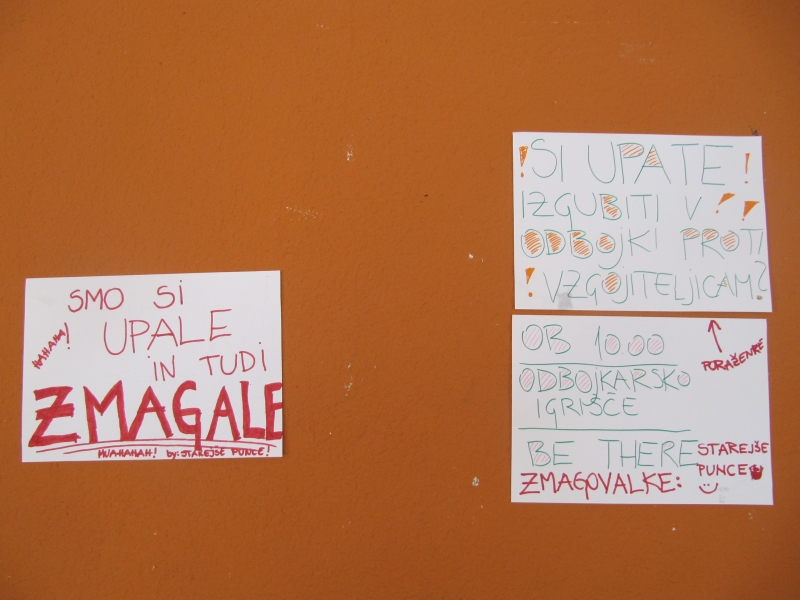 SMO SI
UPALE
IN TUDI
HAHAHA!
ZMAGALE
MUAHAHAH! by: STAREJŠE PUNCE!
! SI UPATE !
IZGUBITI V !!
ODBOJKI PROTI
! VZGOJITELJICAM?
OB 10.00
PORAŽENKE
ODBOJKARSKO
IGRIŠČE
BE THERE
STAREJŠE
PUNCE
ZMAGOVALKE: